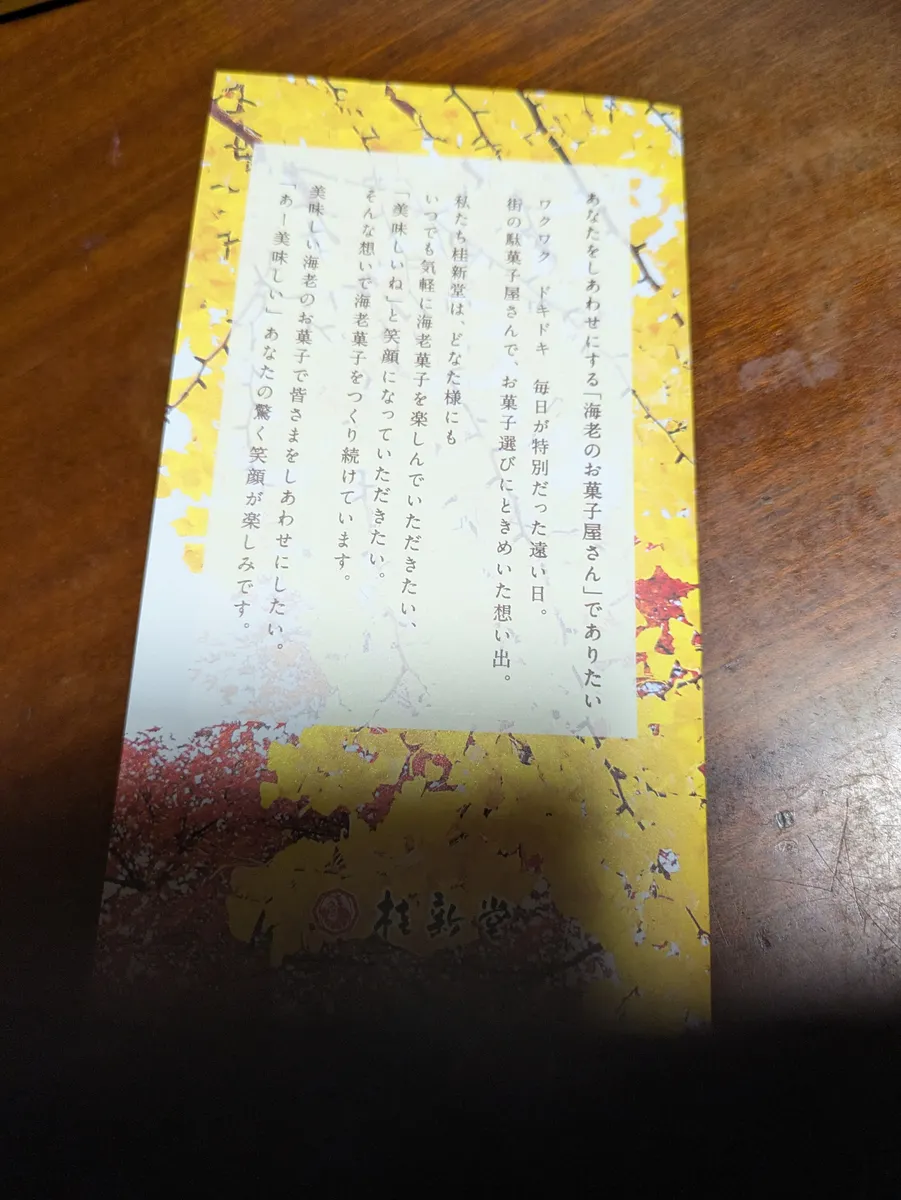 あなたをしあわせにする「海老のお菓子屋さん」でありたい
ワクワク　ドキドキ　毎日が特別だった遠い日。
街の駄菓子屋さんで、お菓子選びにときめいた想い出。
私たち桂新堂は、どなた様にも
いつでも気軽に海老菓子を楽しんでいただきたい、
「美味しいね」と笑顔になっていただきたい。
そんな想いで海老菓子をつくり続けています。
美味しい海老のお菓子で皆さまをしあわせにしたい。
「あー美味しい」あなたの驚く笑顔が楽しみです。
桂新堂